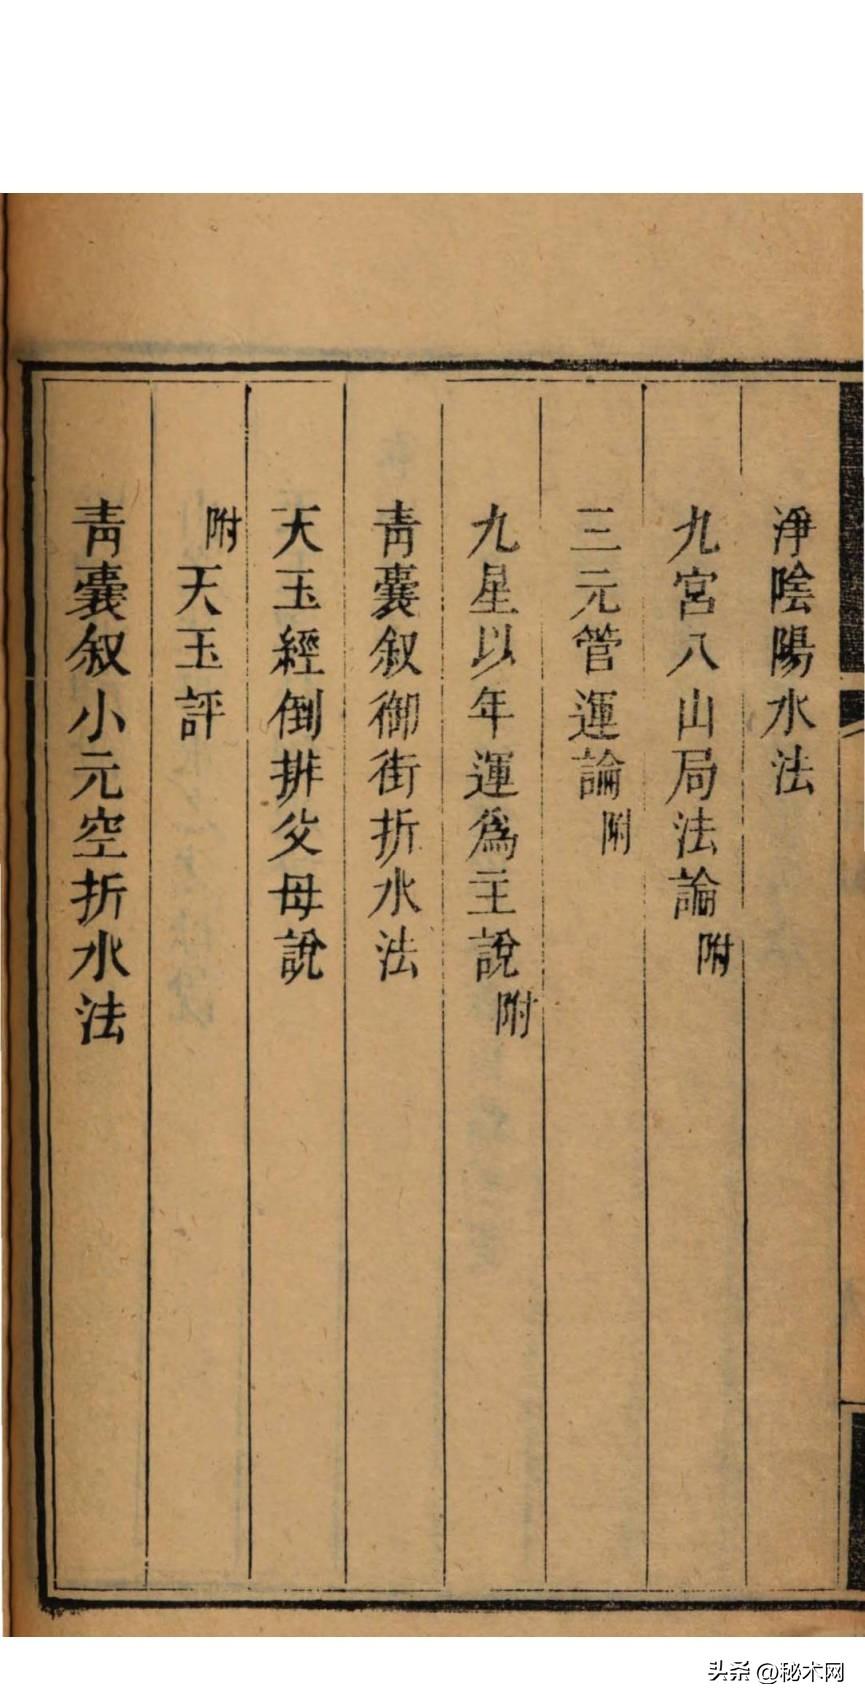 淨陰陽水法
九宮八山局法論附
三元管運論附
九星以年運爲主說附
青囊叙御街折水法
天玉經倒排父母說
附天玉評
青囊叙小元空折水法
头条 @秘术网